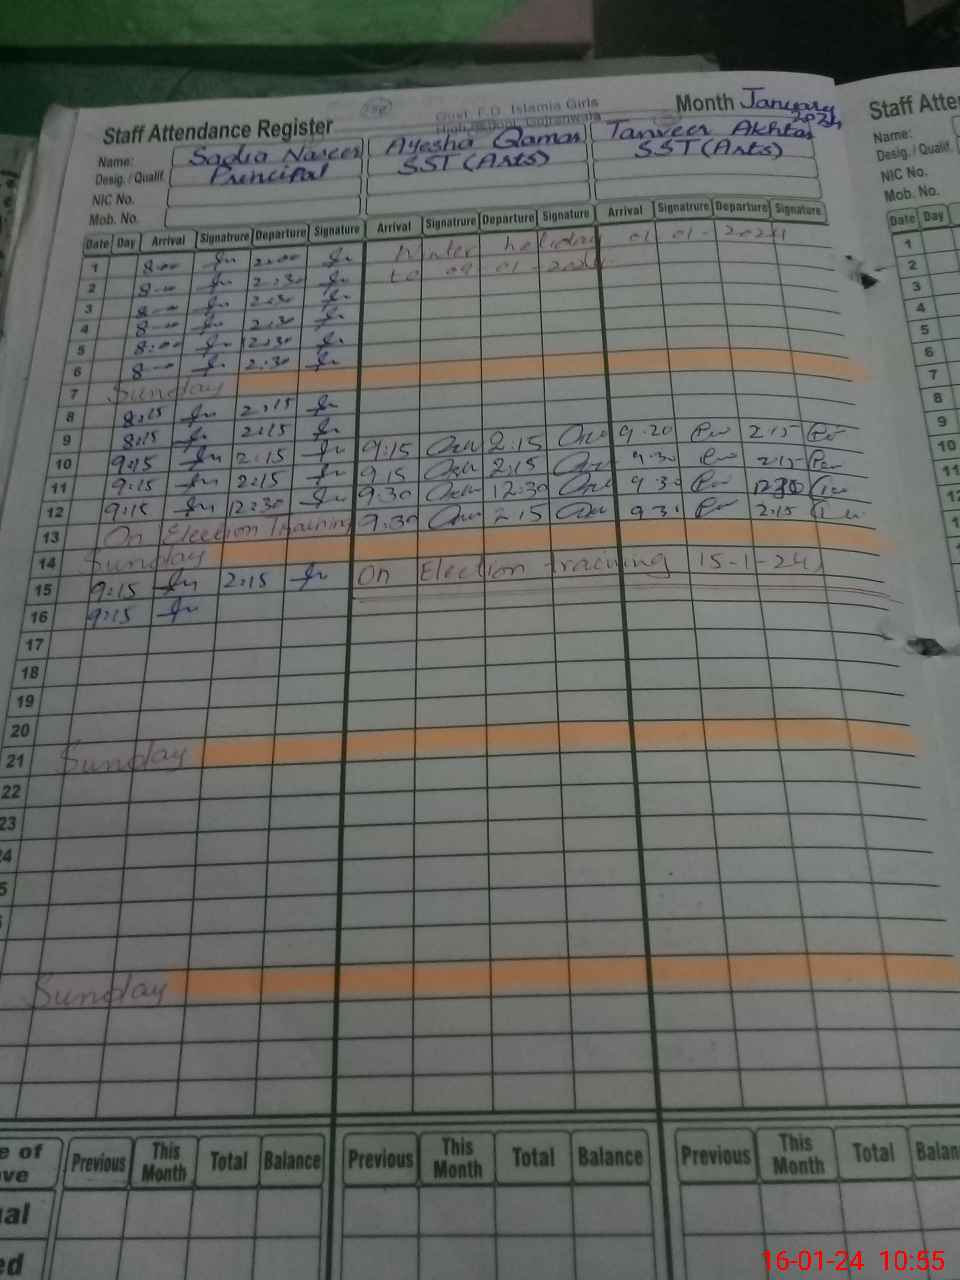 Govt. F.D. Islamia Girls
High School, Gujranwala
Staff Attendance Register Month January 2024
Name: Sadia Naseer Ayesha Qamar Tanveer Akhtar
Desig. / Qualif. Principal SST (Arts) SST (Arts)
NIC No.
Mob. No.
Date Day Arrival Signatrure Departure Signature Arrival Signatrure Departure Signature Arrival Signatrure Departure Signature
1 8:00 2:00 Winter holiday 01-01-2024
2 8:00 2:30 to 09-01-2024
3 8:00 2:30
4 8:00 2:30
5 8:00 2:30
6 8:00 2:30
7 Sunday
8 8:15 2:15
9 8:15 2:15
10 9:15 2:15 9:15 2:15 9:20 2:15
11 9:15 2:15 9:15 2:15 9:30 2:15
12 9:15 12:30 9:30 12:30 9:30 12:30
13 On Election Training 9:30 2:15 9:30 2:15
14 Sunday
15 9:15 2:15 On Election training 15-1-24
16 9:15
17
18
19
20
21 Sunday
22
23
24
Sunday
Previous This Month Total Balance Previous This Month Total Balance Previous This Month Total
Staff
Name:
Desig. / Qualif.
NIC No.
Mob. No.
Date Day
1
2
3
4
5
6
7
8
9
10
11
12
16-01-24 10:55